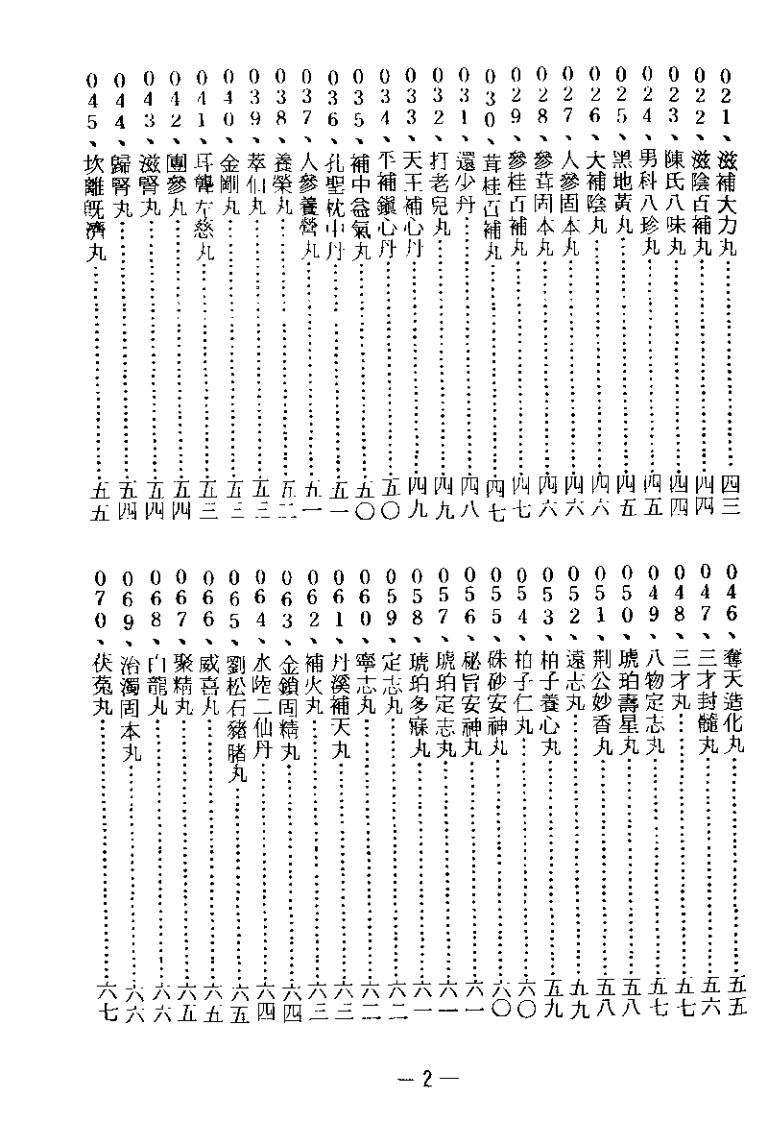 021、滋補大力丸……四三
022、滋陰百補丸……四四
023、陳氏八味丸……四四
024、男科八珍丸……四五
025、黑地黃丸……四五
026、大補陰丸……四六
027、人參固本丸……四六
028、參茸固本丸……四六
029、參桂百補丸……四七
030、茸桂百補丸……四七
031、還少丹……四八
032、打老兒丸……四九
033、天王補心丹……四九
034、平補鎮心丹……五〇
035、補中益氣丸……五〇
036、孔聖枕中丹……五一
037、人參養營丸……五一
038、養榮丸……五二
039、萃仙丸……五三
040、金剛丸……五三
041、耳聾左慈丸……五三
042、團參丸……五四
043、滋腎丸……五四
044、歸腎丸……五四
045、坎離既濟丸……五五
046、奪天造化丸……五五
047、三才封髓丸……五六
048、三才丸……五七
049、八物定志丸……五七
050、琥珀壽星丸……五八
051、荆公妙香丸……五八
052、遠志丸……五九
053、柏子養心丸……五九
054、柏子仁丸……六〇
055、硃砂安神丸……六〇
056、秘旨安神丸……六一
057、琥珀定志丸……六一
058、琥珀多寐丸……六一
059、定志丸……六二
060、寧志丸……六二
061、丹溪補天丸……六三
062、補火丸……六三
063、金鎖固精丸……六四
064、水陸二仙丹……六四
065、劉松石豬肚丸……六五
066、威喜丸……六五
067、聚精丸……六五
068、白龍丸……六六
069、治濁固本丸……六六
070、茯菟丸……六七
— 2 —